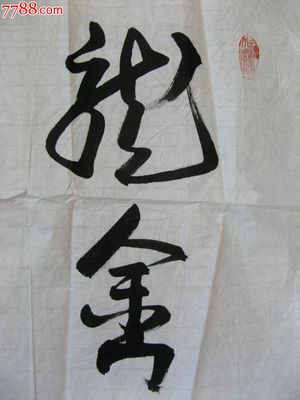 7788.com
龍
金